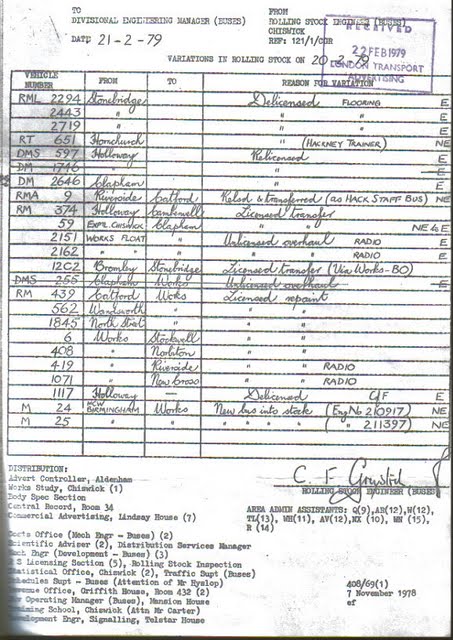 TO FROM
DIVISIONAL ENGINEERING MANAGER (BUSES) ROLLING STOCK ENGINEER (BUSES)
CHISWICK
DATE 21-2-79 REF: 121/1/CGR
RECEIVED
22 FEB 1979
LONDON TRANSPORT
ADVERTISING
VARIATIONS IN ROLLING STOCK ON 20-2-79
VEHICLE NUMBER FROM TO REASON FOR VARIATION
RML 2294 Stonebridge Delicensed FLOORING E
2443 " " " E
2719 " " " E
RT 651 Hornchurch " (HACKNEY TRAINER) NE
DMS 597 Holloway Relicensed E
DM 1746 " " E
DM 2646 Clapham " E
RMA 9 Riverside Catford Relsd & transferred (as HACK STAFF BUS) NE
RM 374 Holloway Camberwell Licensed transfer
59 EXPTL CHISWICK Clapham " " NE to E
2151 WORKS FLOAT " Unlicensed overhaul RADIO E
2162 " " " " RADIO E
1202 Bromley Stonebridge Licensed transfer (Via Works-BO)
DMS 255 Clapham Works Unlicensed overhaul E
RM 439 Catford Works Licensed repaint
562 Wandsworth " " "
1845 North Street " " "
6 Works Stockwell " "
408 " Norbiton " "
419 " Riverside " " RADIO
1071 " New Cross " " RADIO
1117 Holloway — Delicensed C/F E
M 24 MCW BIRMINGHAM Works New bus into stock (Eng No 210917) NE
M 25 " " " " " " ( " 211397) NE
DISTRIBUTION:
Advert Controller, Aldenham
Works Study, Chiswick (1)
Body Spec Section
Central Record, Room 34
Commercial Advertising, Lindsay House (7)
ROLLING STOCK ENGINEER (BUSES)
AREA ADMIN ASSISTANTS: Q(9),AH(12),W(12),
TL(13), WH(11), AV(12), NX (10), WN (15),
R (14)
Office (Mech Engr - Buses) (2)
Scientific Adviser (2), Distribution Services Manager
Mech Engr (Development - Buses) (3)
Licensing Section (5), Rolling Stock Inspection
Statistical Office, Chiswick (2), Traffic Supt (Buses)
Schedules Supt - Buses (Attention of Mr Hyslop)
Revenue Office, Griffith House, Room 432 (2)
Operating Manager (Buses), Mansion House
Training School, Chiswick (Attn Mr Carter)
Development Engr, Signalling, Telstar House
408/69(1)
7 November 1978
ef